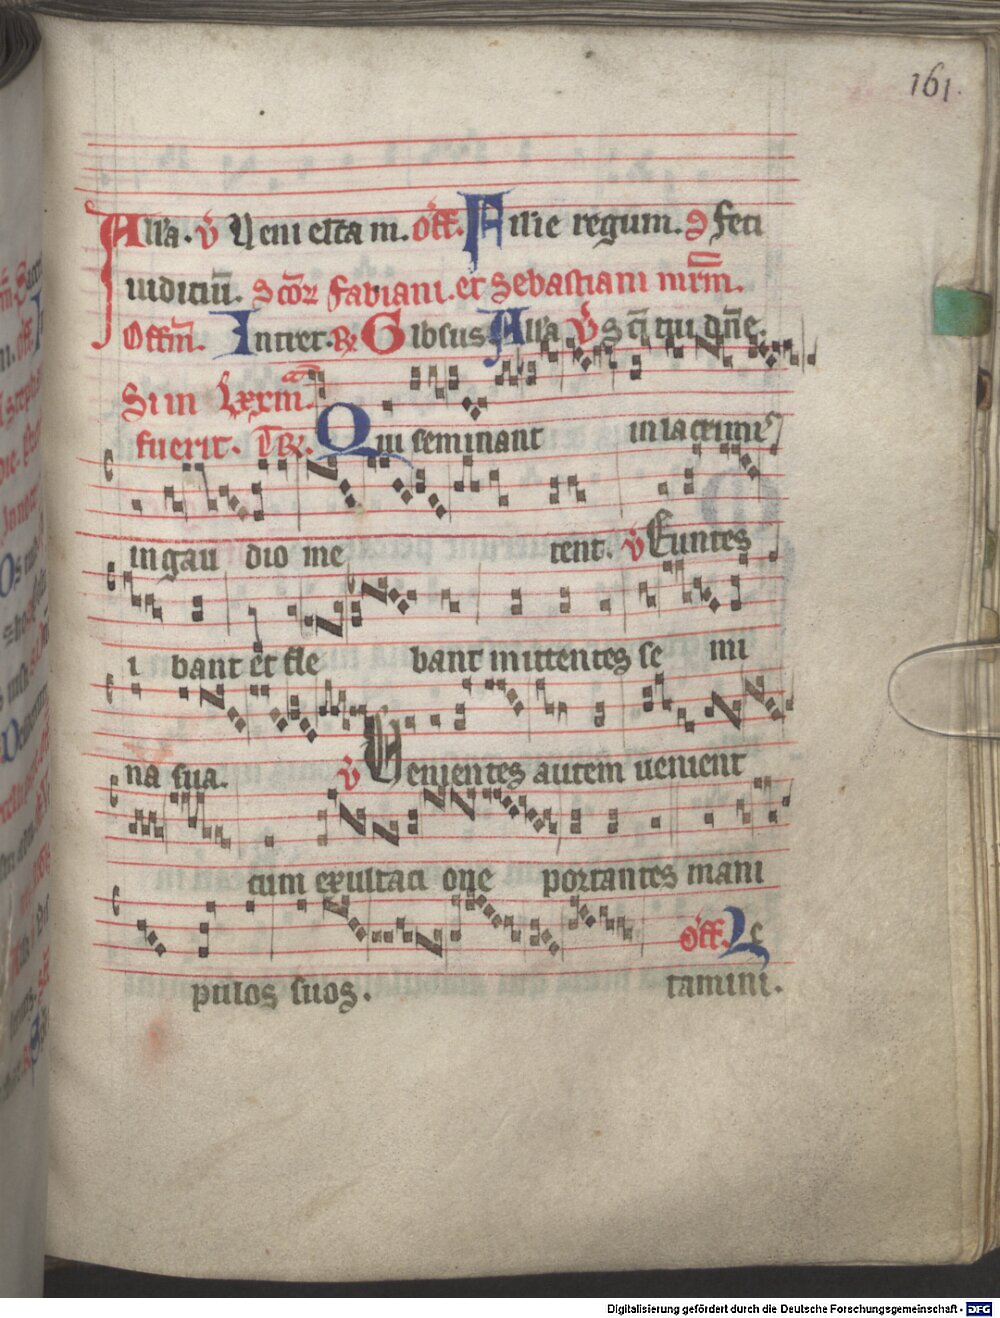 161.
Alla. v̄ Veni elcā m. off. Filie regum. ꝯ feci
iudiciū. Scōꝝ fabiani. et Sebastiani mr̄m.
Offm̄. Intret. R̷ Glosus Alla v̄ Scī tui dn̄e.
Si in lxxm̄ā
fuerit. TR̷. Qui seminant in lacrimis
in gau dio me tent. v̄ Euntes
i bant et fle bant mittentes se mi
na sua. v̄ Venientes autem uenient
cum exultaci one portantes mani
off. Le
pulos suos. tamini.
Digitalisierung gefördert durch die Deutsche Forschungsgemeinschaft - DFG